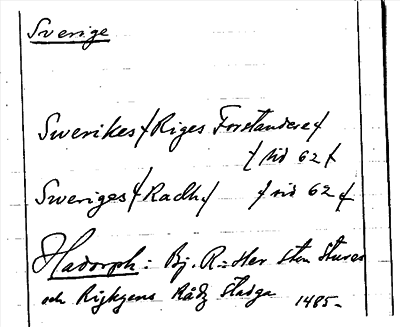 Sverige
Swerikes/Riges Forstandere/
/ sid 62 /
Sweriges/Radh/ / sid 62 /
Hadorph: Bj. R: Her Sten Stures
och Rijkzens Rådz Stadga 1485-